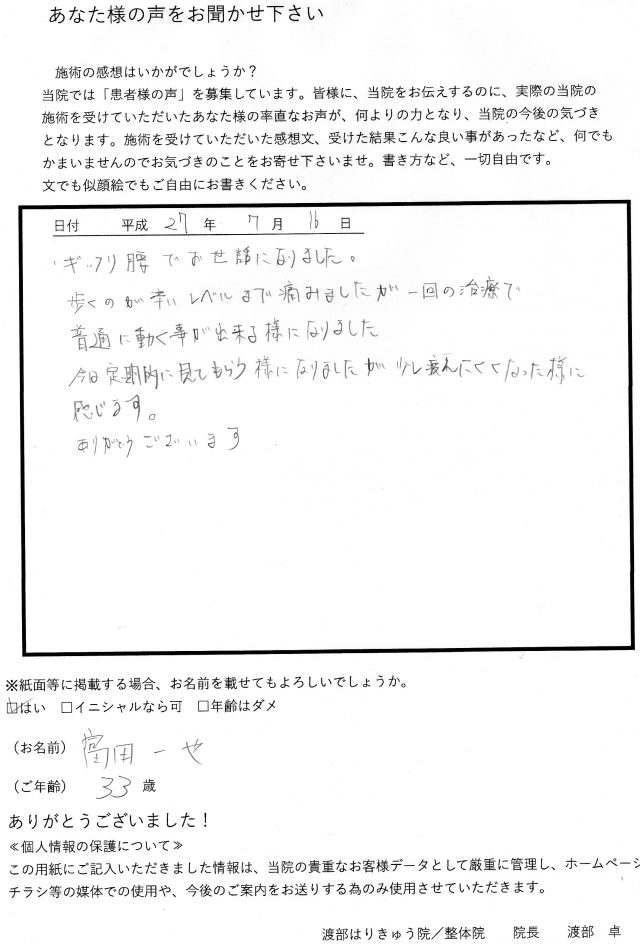 あなた様の声をお聞かせ下さい
施術の感想はいかがでしょうか？
当院では「患者様の声」を募集しています。皆様に、当院をお伝えするのに、実際の当院の
施術を受けていただいたあなた様の率直なお声が、何よりの力となり、当院の今後の気づき
となります。施術を受けていただいた感想文、受けた結果こんな良い事があったなど、何でも
かまいませんのでお気づきのことをお寄せ下さいませ。書き方など、一切自由です。
文でも似顔絵でもご自由にお書きください。
日付 平成 27 年 7 月 16 日
ギックリ腰でお世話になりました。
歩くのが辛いレベルまで痛みましたが一回の治療で
普通に動く事が出来る様になりました
今は定期的に見てもらう様になりましたが少し疲れにくくなった様に
感じます。
ありがとうございます
※紙面等に掲載する場合、お名前を載せてもよろしいでしょうか。
☑はい □イニシャルなら可 □年齢はダメ
（お名前） 富田一也
（ご年齢） 33 歳
ありがとうございました！
≪個人情報の保護について≫
この用紙にご記入いただきました情報は、当院の貴重なお客様データとして厳重に管理し、ホームページ
チラシ等の媒体での使用や、今後のご案内をお送りする為のみ使用させていただきます。
渡部はりきゅう院／整体院 院長 渡部 卓